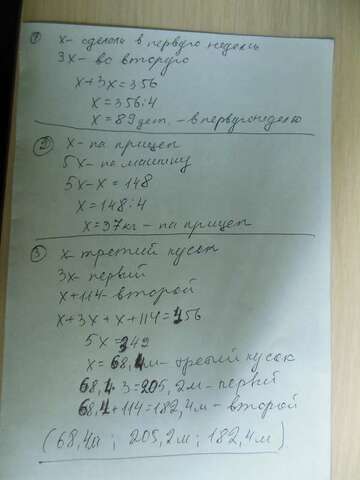 ① х- сделали в первую неделю
3х- во вторую
х+3х=356
х=356:4
х=89дет. -в первую неделю
② х- на прицеп
5х- на машину
5х-х=148
х=148:4
х=37кг- на прицеп
③ х- третий кусок
3х- первый
х+114- второй
х+3х+х+114=456
5х=342
х=68,4м- третий кусок
68,4·3=205,2м- первый
68,4+114=182,4м- второй
(68,4м; 205,2м; 182,4м)